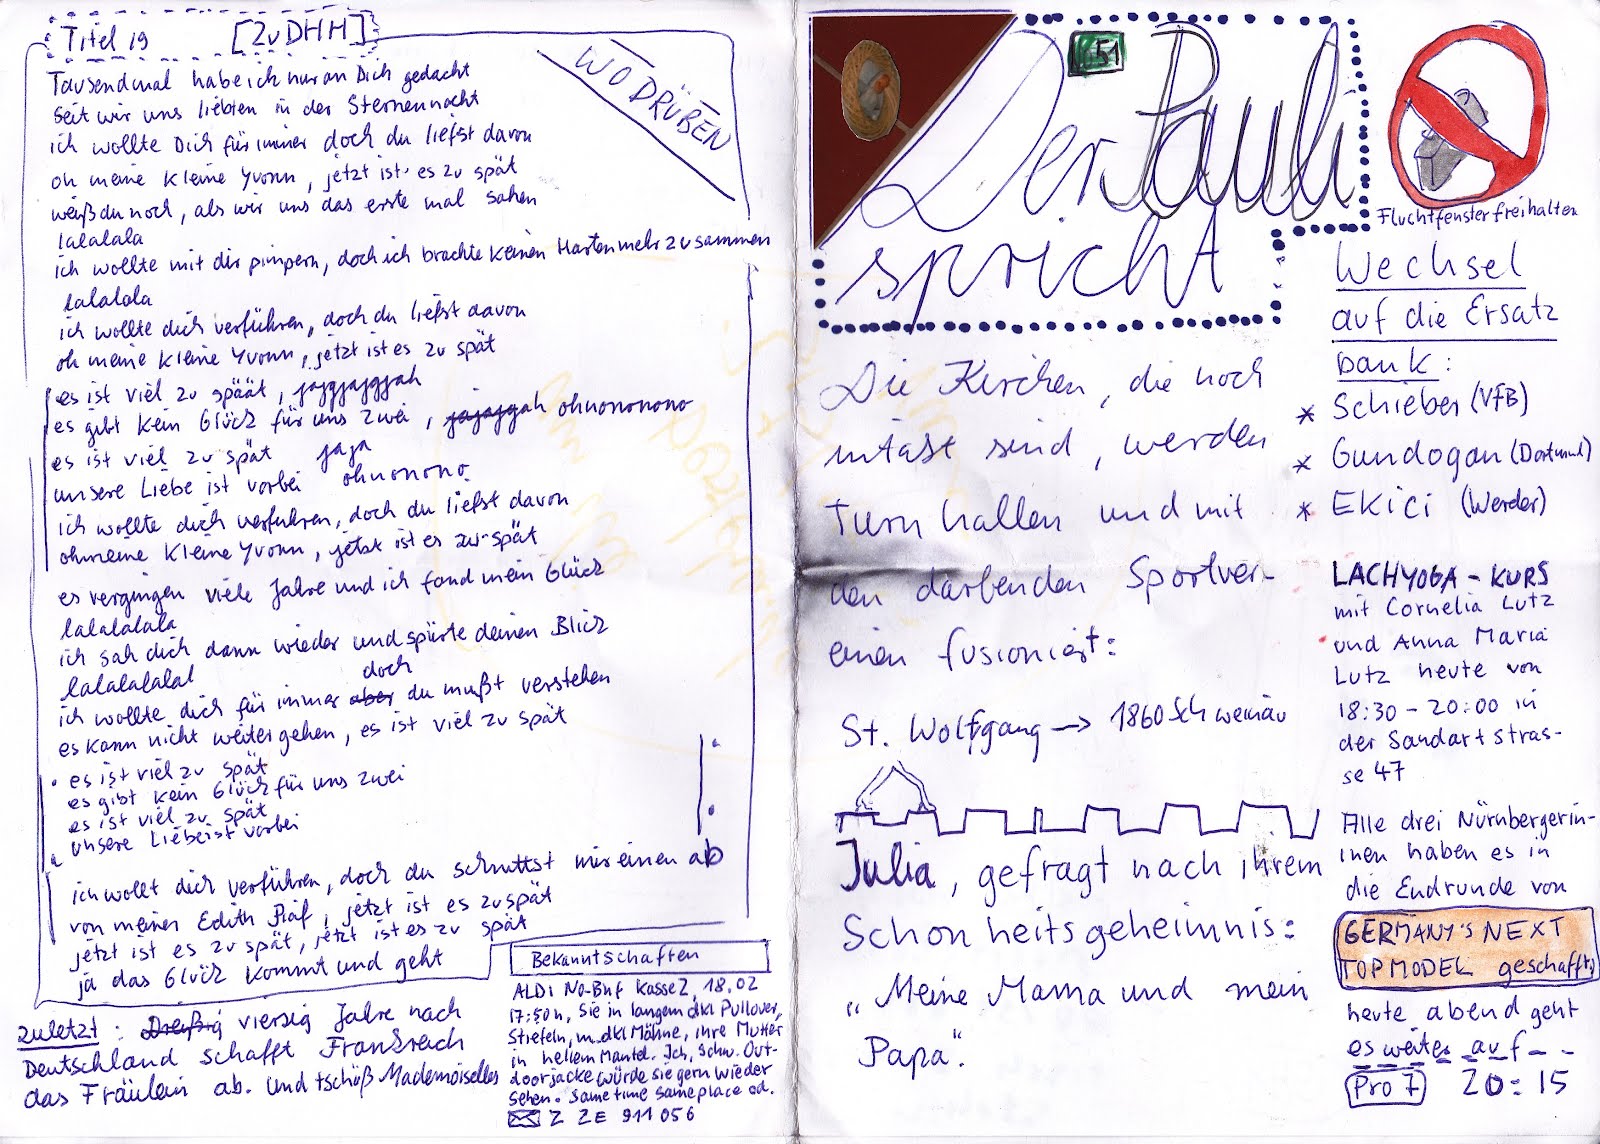 Titel 19 [ZuDHH]
WO DRÜBEN
Tausendmal habe ich nur an Dich gedacht
seit wir uns liebten in der Sternennacht
ich wollte Dich für immer doch du liefst davon
oh meine kleine Yvonn, jetzt ist es zu spät
weißdunoch, als wir uns das erste mal sahen
lalalala
ich wollte mit dir pimpern, doch ich brachte keinen Harten mehr zusammen
lalalala
ich wollte dich verführen, doch du liefst davon
oh meine kleine Yvonn, jetzt ist es zu spät
es ist viel zu späät, jajgjajgjjah
es gibt kein Glück für uns zwei, jajajgah ohnononono
es ist viel zu spät jaja
unsere Liebe ist vorbei ohnonono
ich wollte dich verführen, doch du liefst davon
ohmeine kleine Yvonn, jetzt ist es zu spät
es vergingen viele Jahre und ich fand mein Glück
lalalalala
ich sah dich dann wieder und spürte deinen Blick
lalalalalal
doch
ich wollte dich für immer aber du mußt verstehen
es kann nicht weitergehen, es ist viel zu spät
es ist viel zu spät
es gibt kein Glück für uns zwei
es ist viel zu spät
unsere Liebe ist vorbei
ich wollt dich verführen, doch du schnittst mir einen ab
von meiner Edith Piaf, jetzt ist es zu spät
jetzt ist es zu spät, jetzt ist es zu spät
ja das Glück kommt und geht
zuletzt: Dreißig vierzig Jahre nach
Deutschland schafft Frankreich
das Fräulein ab. Und tschöß Mademoiselles
Bekanntschaften
ALDI No-Bhf Kasse 2, 18.02
17:50h, Sie in langem dkl Pullover,
Stiefeln, m. dkl Mähne, ihre Mutter
in hellem Mantel. Ich, schw. Out-
doorjacke würde sie gern wieder
sehen. Same time same place od.
Z ZE 911 056
51
Der Pauli
spricht
Die Kirchen, die noch
intakt sind, werden
Turnhallen und mit
den darbenden Sportver-
einen fusioniert:
St. Wolfgang -> 1860 Schweinau
Julia, gefragt nach ihrem
Schönheitsgeheimnis:
"Meine Mama und mein
Papa".
Fluchtfenster freihalten
Wechsel
auf die Ersatz
bank:
* Schieber (VfB)
* Gundogan (Dortmund)
* EKICI (Werder)
LACHYOGA - KURS
mit Cornelia Lutz
und Anna Maria
Lutz heute von
18:30 - 20:00 in
der Sandartstras-
se 47
Alle drei Nürnbergerin-
innen haben es in
die Endrunde von
GERMANY'S NEXT
TOPMODEL geschafft,
heute abend geht
es weiter auf - -
Pro 7 20:15